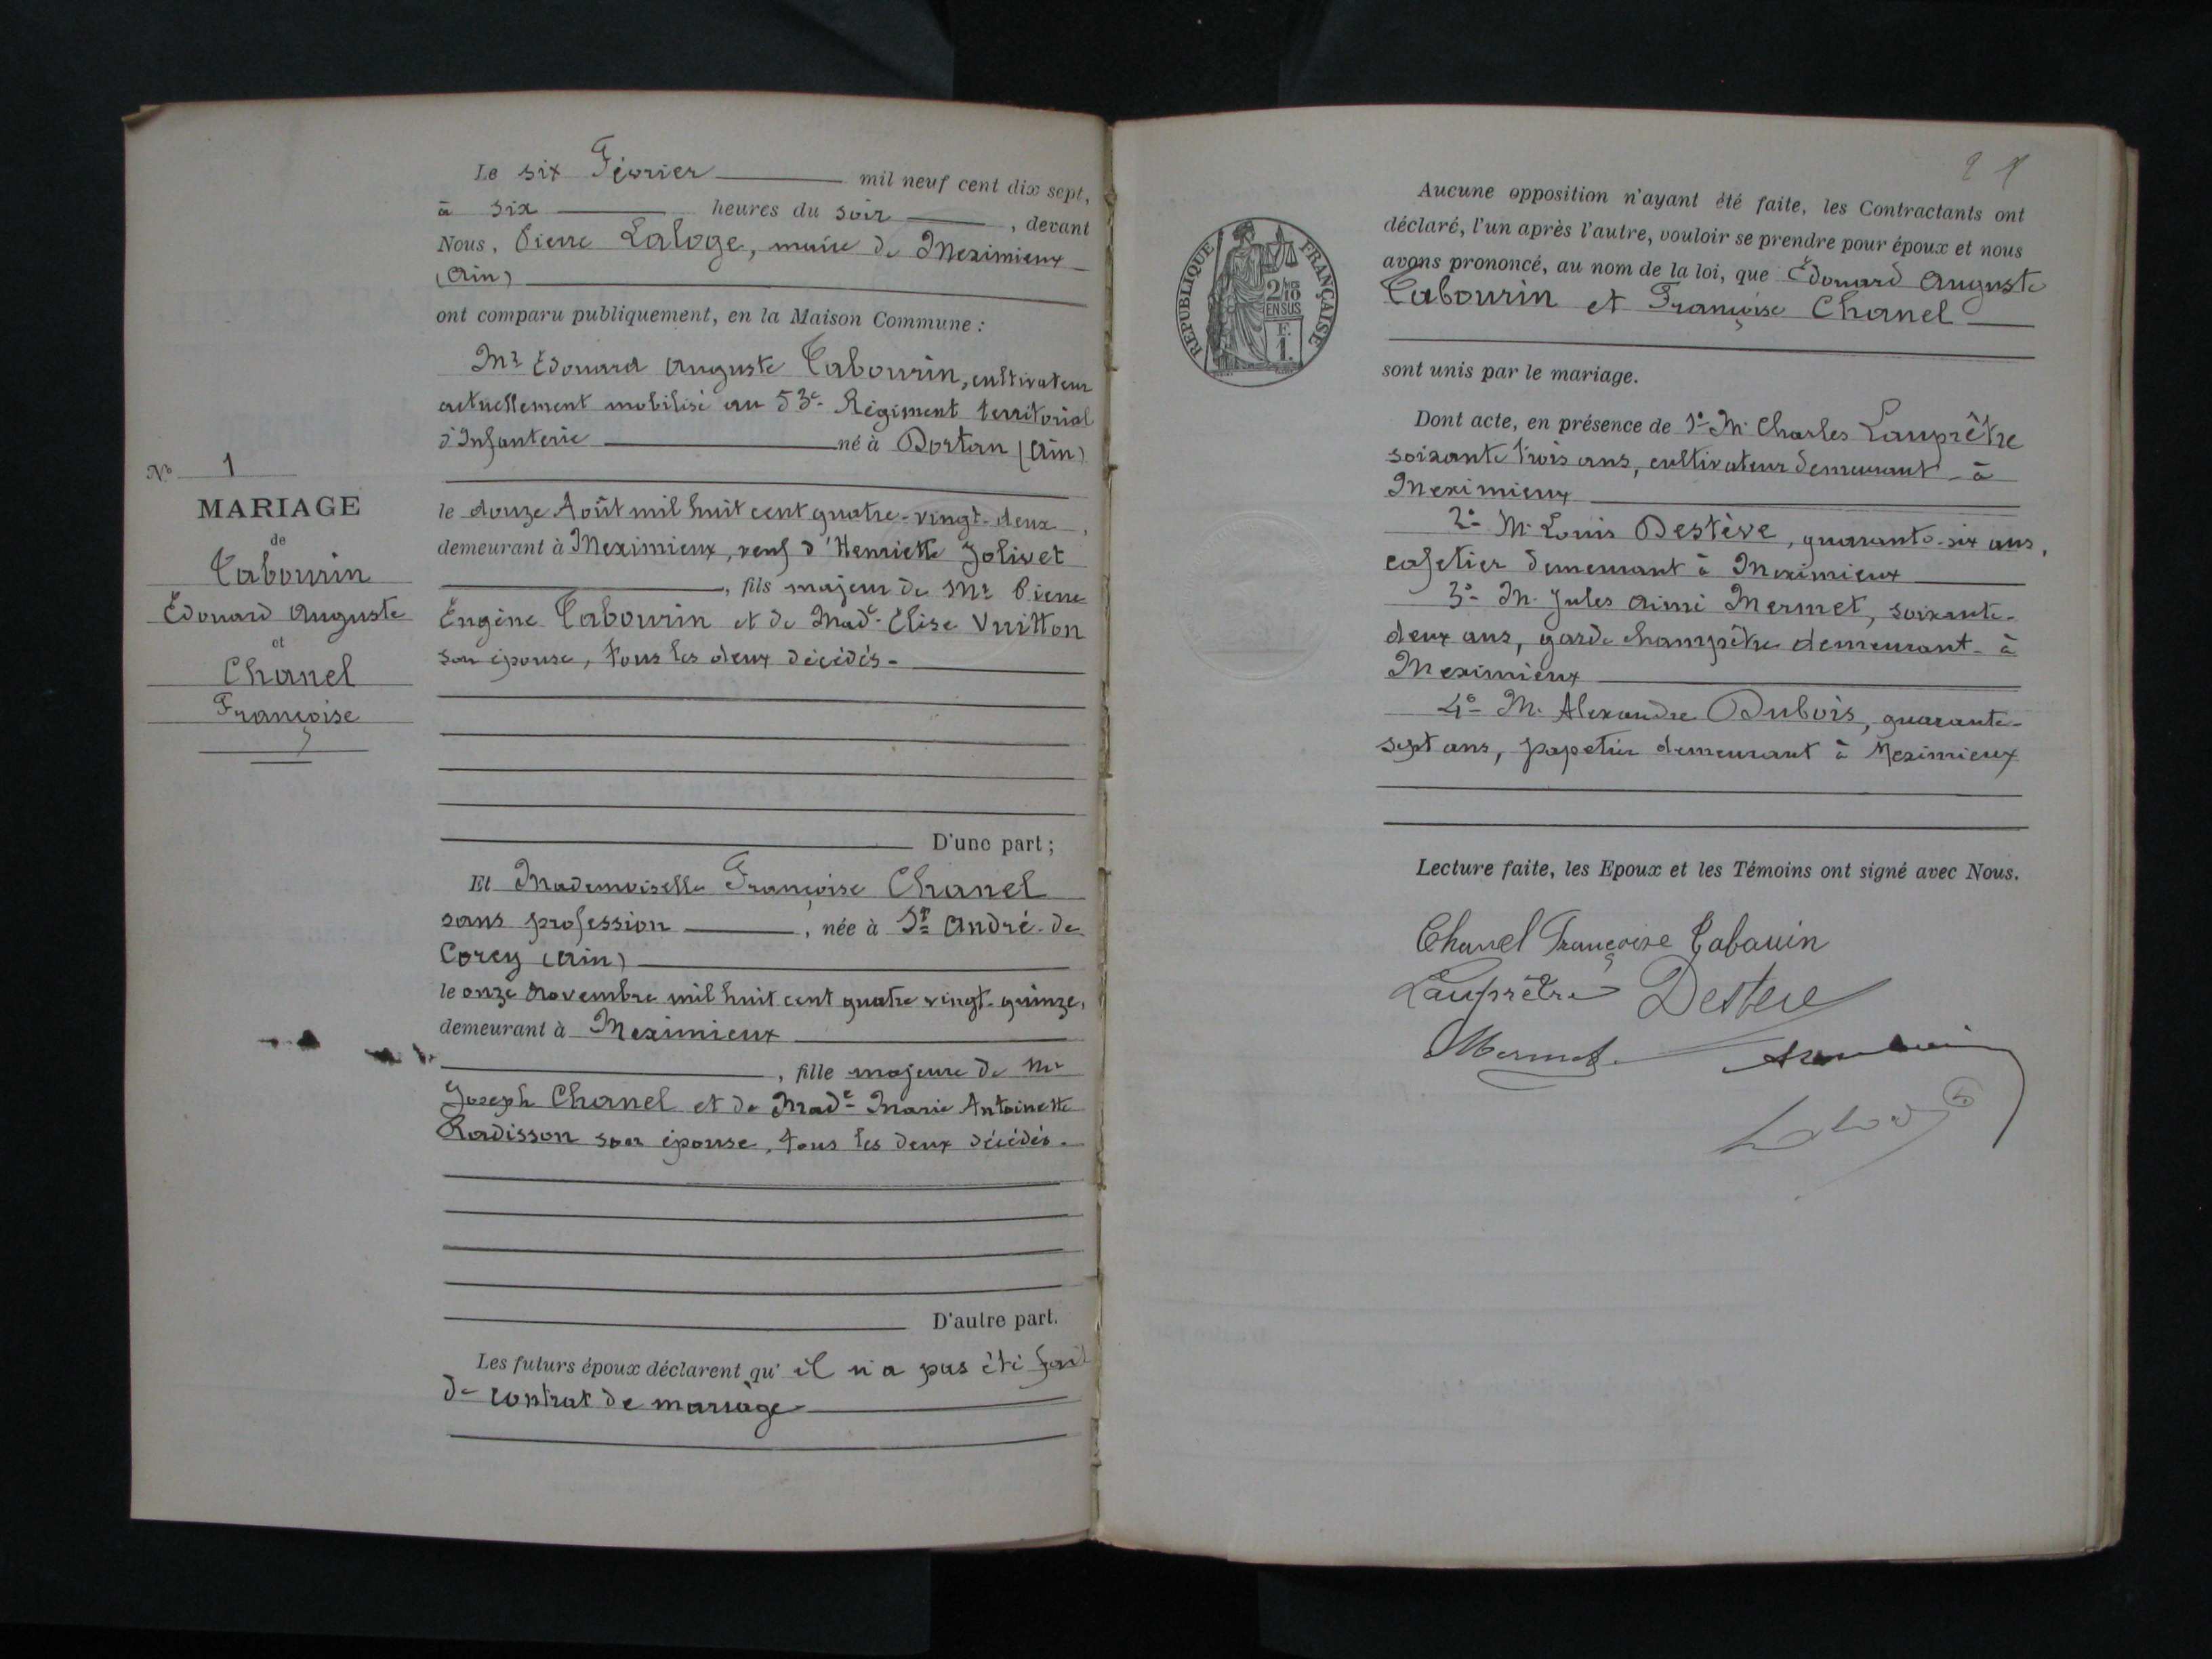 N° 1
MARIAGE
de
Tabourin
Édouard Auguste
et
Chanel
Françoise
Le six Février mil neuf cent dix sept,
à six heures du soir, devant
Nous, Pierre Laloge, maire de Meximieux
(Ain)
ont comparu publiquement, en la Maison Commune :
Mr Édouard Auguste Tabourin, cultivateur
actuellement mobilisé au 53e Régiment territorial
d'Infanterie né à Dortan (Ain)
le douze Août mil huit cent quatre-vingt-deux,
demeurant à Meximieux, veuf d'Henriette Jolivet
, fils majeur de Mr Pierre
Eugène Tabourin et de Made Elise Vuitton
son épouse, tous les deux décédés.
D'une part ;
Et Mademoiselle Françoise Chanel
sans profession, née à St André-de
Corcy (Ain)
le onze Novembre mil huit cent quatre vingt-quinze,
demeurant à Meximieux
, fille majeure de Mr
Joseph Chanel et de Made Marie Antoinette
Radisson son épouse, tous les deux décédés.
D'autre part.
Les futurs époux déclarent qu'il n'a pas été fait
de contrat de mariage
RÉPUBLIQUE FRANÇAISE
2/10
EN SUS
F.
1.
Aucune opposition n'ayant été faite, les Contractants ont
déclaré, l'un après l'autre, vouloir se prendre pour époux et nous
avons prononcé, au nom de la loi, que Édouard Auguste
Tabourin et Françoise Chanel
sont unis par le mariage.
Dont acte, en présence de 1° M. Charles Lauprêtre
soixante trois ans, cultivateur demeurant à
Meximieux
2° M. Louis Destève, quarante-six ans,
cafetier demeurant à Meximieux
3° M. Jules Aimé Mermet, soixante-
deux ans, garde champêtre demeurant à
Meximieux
4° M. Alexandre Dubois, quarante-
sept ans, papetier demeurant à Meximieux
Lecture faite, les Epoux et les Témoins ont signé avec Nous.
Chanel Françoise Tabourin
Lauprêtre Desteve
Mermet